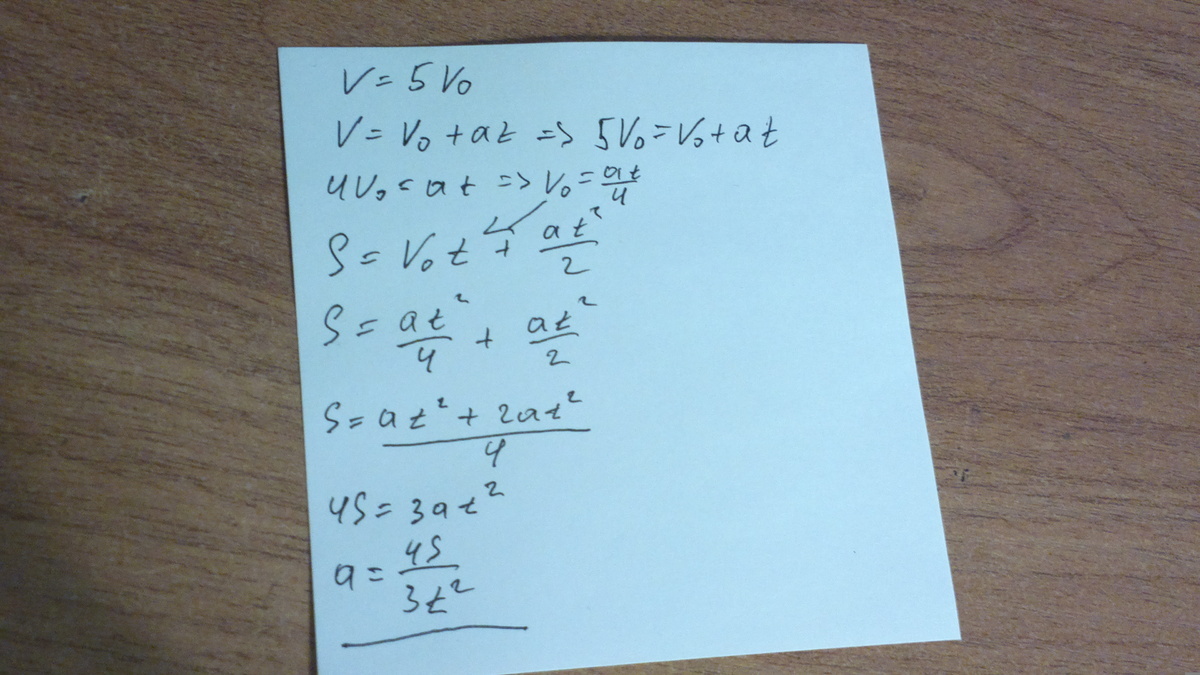 V = 5 V₀
V = V₀ + at => 5V₀ = V₀ + at
4V₀ = at => V₀ = at/4
S = V₀t + at²/2
S = at²/4 + at²/2
S = (at² + 2at²)/4
4S = 3at²
a = 4S/3t²